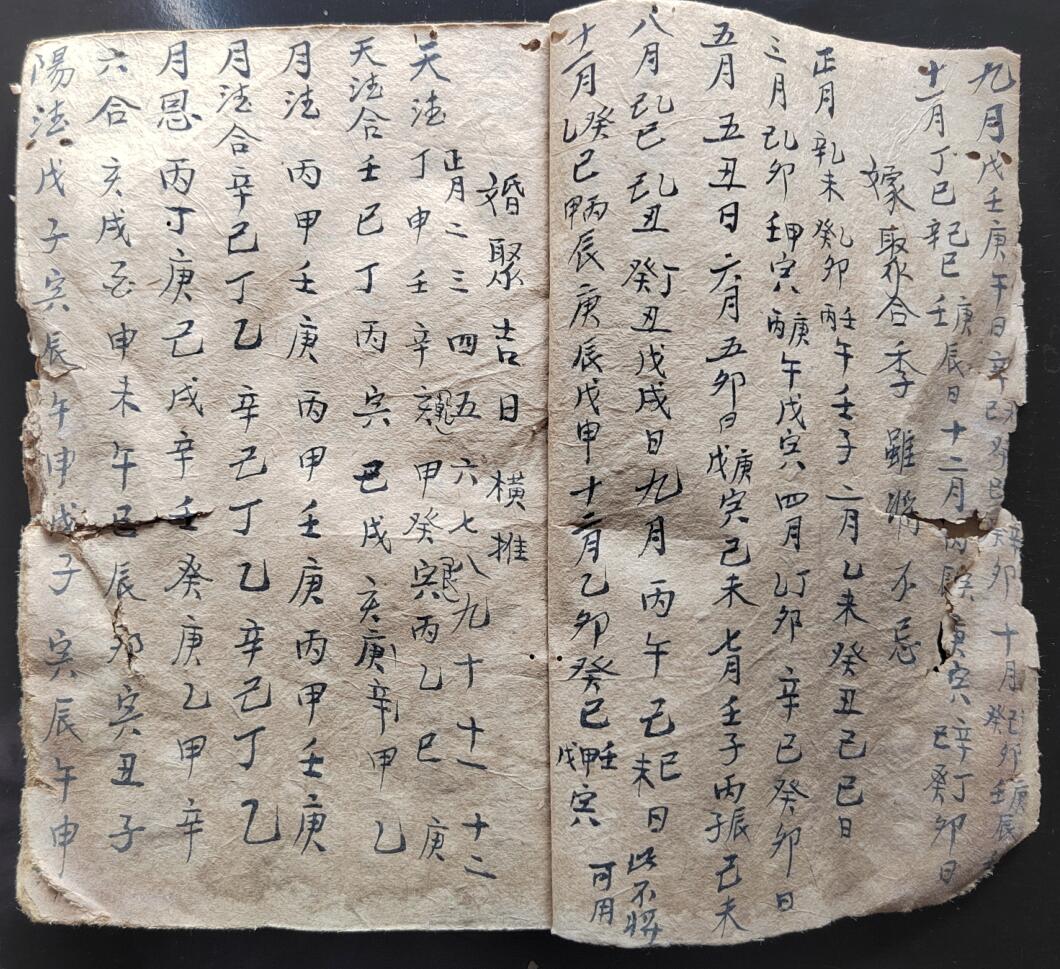 九月戊壬庚午日辛己癸巳辛卯十月己卯庚辰
十一月丁巳辛己巳壬庚辰日十二月丙寅庚寅辛丁卯日己癸
嫁聚合季雖將不忌
正月辛乙未癸乙卯丙壬午壬子二月乙未癸丑己巳日
三月己乙卯壬甲寅丙庚午戊寅四月乙丁卯辛巳癸卯日
五月五丑日六月五卯日戊庚寅己未七月壬子丙辰子己未
八月己乙巳己乙丑癸丁丑戊戌日九月丙午己未巳日此不將
十一月乙癸巳甲丙辰庚辰戊申十二月乙卯癸巳戊甲壬寅可用
婚聚吉日橫推
正月二三四五六七八九十十一十二
天法丁申壬辛亥甲癸寅丙乙巳庚
天法合壬巳丁丙寅己戌亥庚辛甲乙
月法丙甲壬庚丙甲壬庚丙甲壬庚
月法合辛己丁乙辛己丁乙辛己丁乙
月恩丙丁庚己戊辛壬癸庚乙甲辛
六合亥戌酉申未午巳辰卯寅丑子
陽法戊子寅辰午申戌子寅辰午申